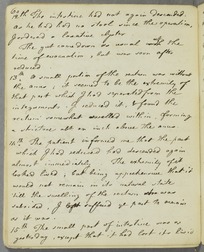 12th The intestine had not again descended,
as he had had no stool since the operation,
I ordered a laxative clyster
The gut came down as usual with the
time of evacuation, but was soon after
reduced
13th A small portion of the rectum was without
the anus; it seemed to be the extremity of
that part which I had separated from the
integuments. I reduced it, & found the
rectum somewhat swelled within, forming
a stricture about an inch above the anus
14th The patient informed me that the part
which I had reduced had descended again
almost immediately. The extremity of it
looked livid, but being apprehensive that it
would not remain in its natural state
till the swelling of the rectum was
subsided, I suffered it part to remain
as it was
15th The small part of intestine was as
yesterday, except that it had lost its livid